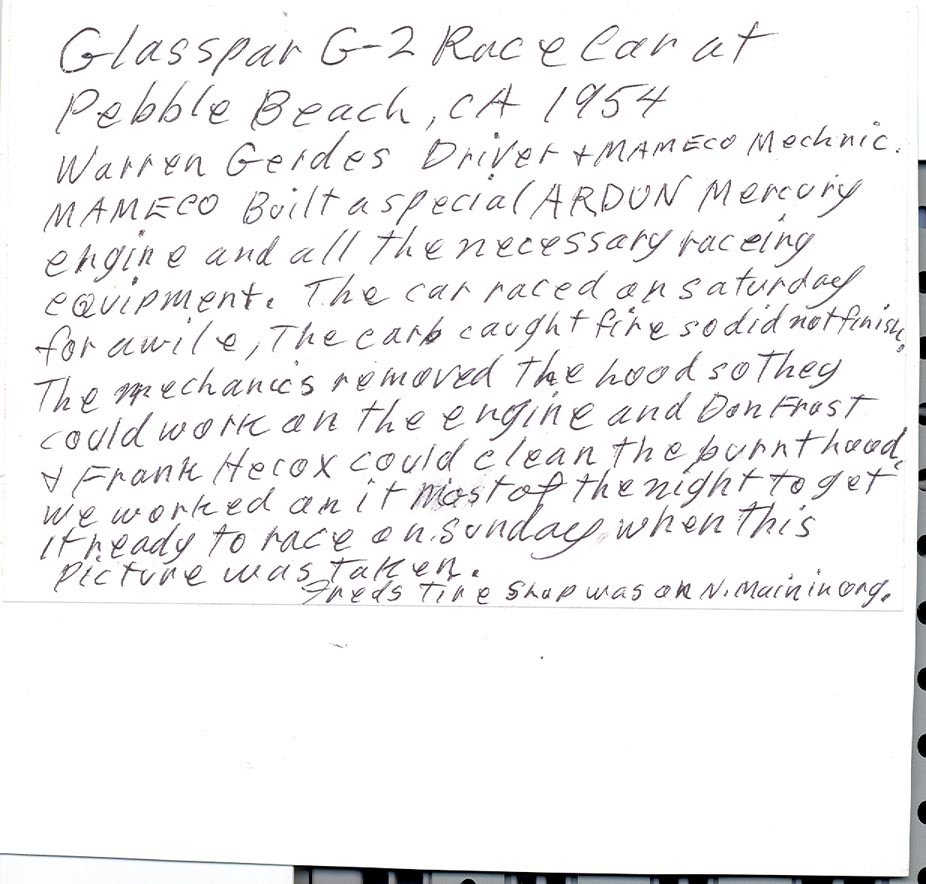 Glasspar G-2 Race Car at
Pebble Beach, CA 1954
Warren Gerdes Driver + MAMECO Mechnic.
MAMECO Built a special ARDUN Mercury
engine and all the necessary raceing
equipment. The car raced on saturday
for awile, The carb caught fire so did not finish.
The mechanics removed the hood so They
could work on the engine and Don Frost
& Frank Hecox could clean the burnt hood.
We worked on it Most of the night to get
it ready to race on Sunday when this
picture was taken.
Freds Tire Shop was on N. Main in org.